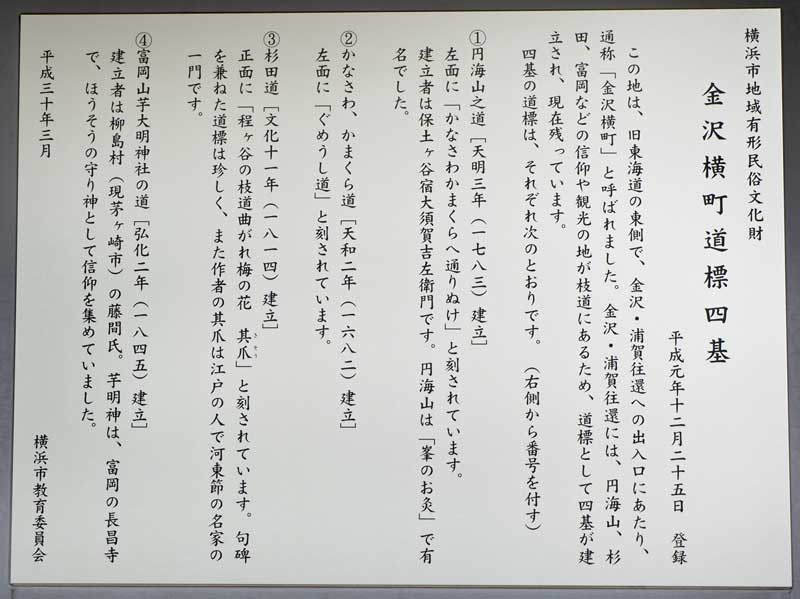 横浜市地域有形民俗文化財
金沢横町道標四基
平成元年十二月二十五日　登録
この地は、旧東海道の東側で、金沢・浦賀往還への出入口にあたり、
通称「金沢横町」と呼ばれました。金沢・浦賀往還には、円海山、杉
田、富岡などの信仰や観光の地が枝道にあるため、道標として四基が建
立され、現在残っています。
四基の道標は、それぞれ次のとおりです。（右側から番号を付す）
①円海山之道［天明三年（一七八三）建立］
左面に「かなさわかまくらへ通りぬけ」と刻されています。
建立者は保土ヶ谷宿大須賀吉左衛門です。円海山は「峯のお灸」で有
名でした。
②かなさわ、かまくら道［天和二年（一六八二）建立］
左面に「ぐめうし道」と刻されています。
③杉田道［文化十一年（一八一四）建立］
正面に「程ヶ谷の枝道曲がれ梅の花　其爪」と刻されています。句碑
きそう
を兼ねた道標は珍しく、また作者の其爪は江戸の人で河東節の名家の
一門です。
④富岡山芋大明神社の道［弘化二年（一八四五）建立］
建立者は柳島村（現茅ヶ崎市）の藤間氏。芋明神は、富岡の長昌寺
で、ほうそうの守り神として信仰を集めていました。
平成三十年三月
横浜市教育委員会